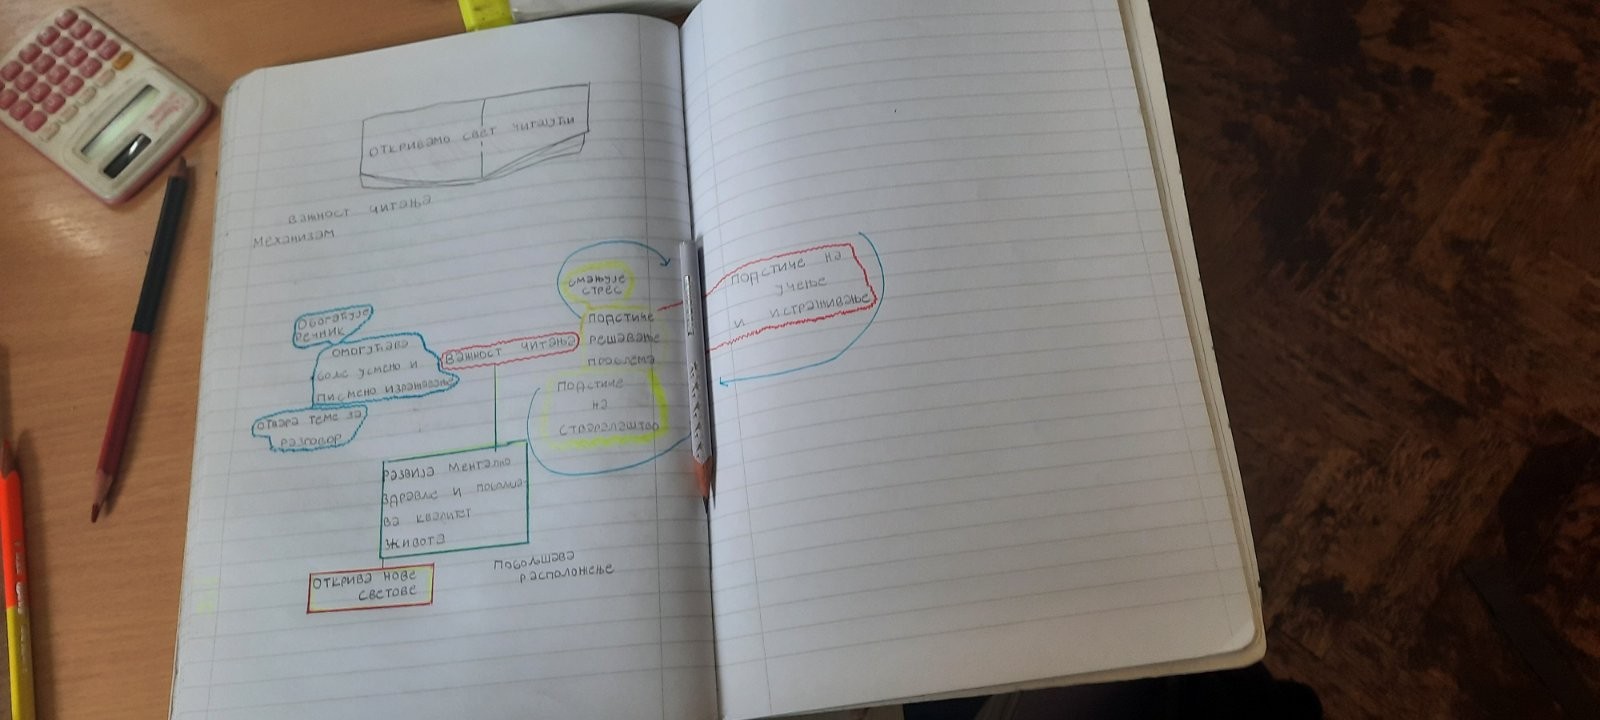 откривамо свет читајући
важност читања
механизам
смањује
стрес
подстиче на
учење
и истраживање
обогаћује
речник
подстиче
решавање
проблема
важност читања
омогућава
боље усмено и
писмено изражавање
подстиче
на
стваралаштво
отвара теме за
разговор
развија ментално
здравље и
ва квалитет
живота
побољшава
расположење
открива нове
светове